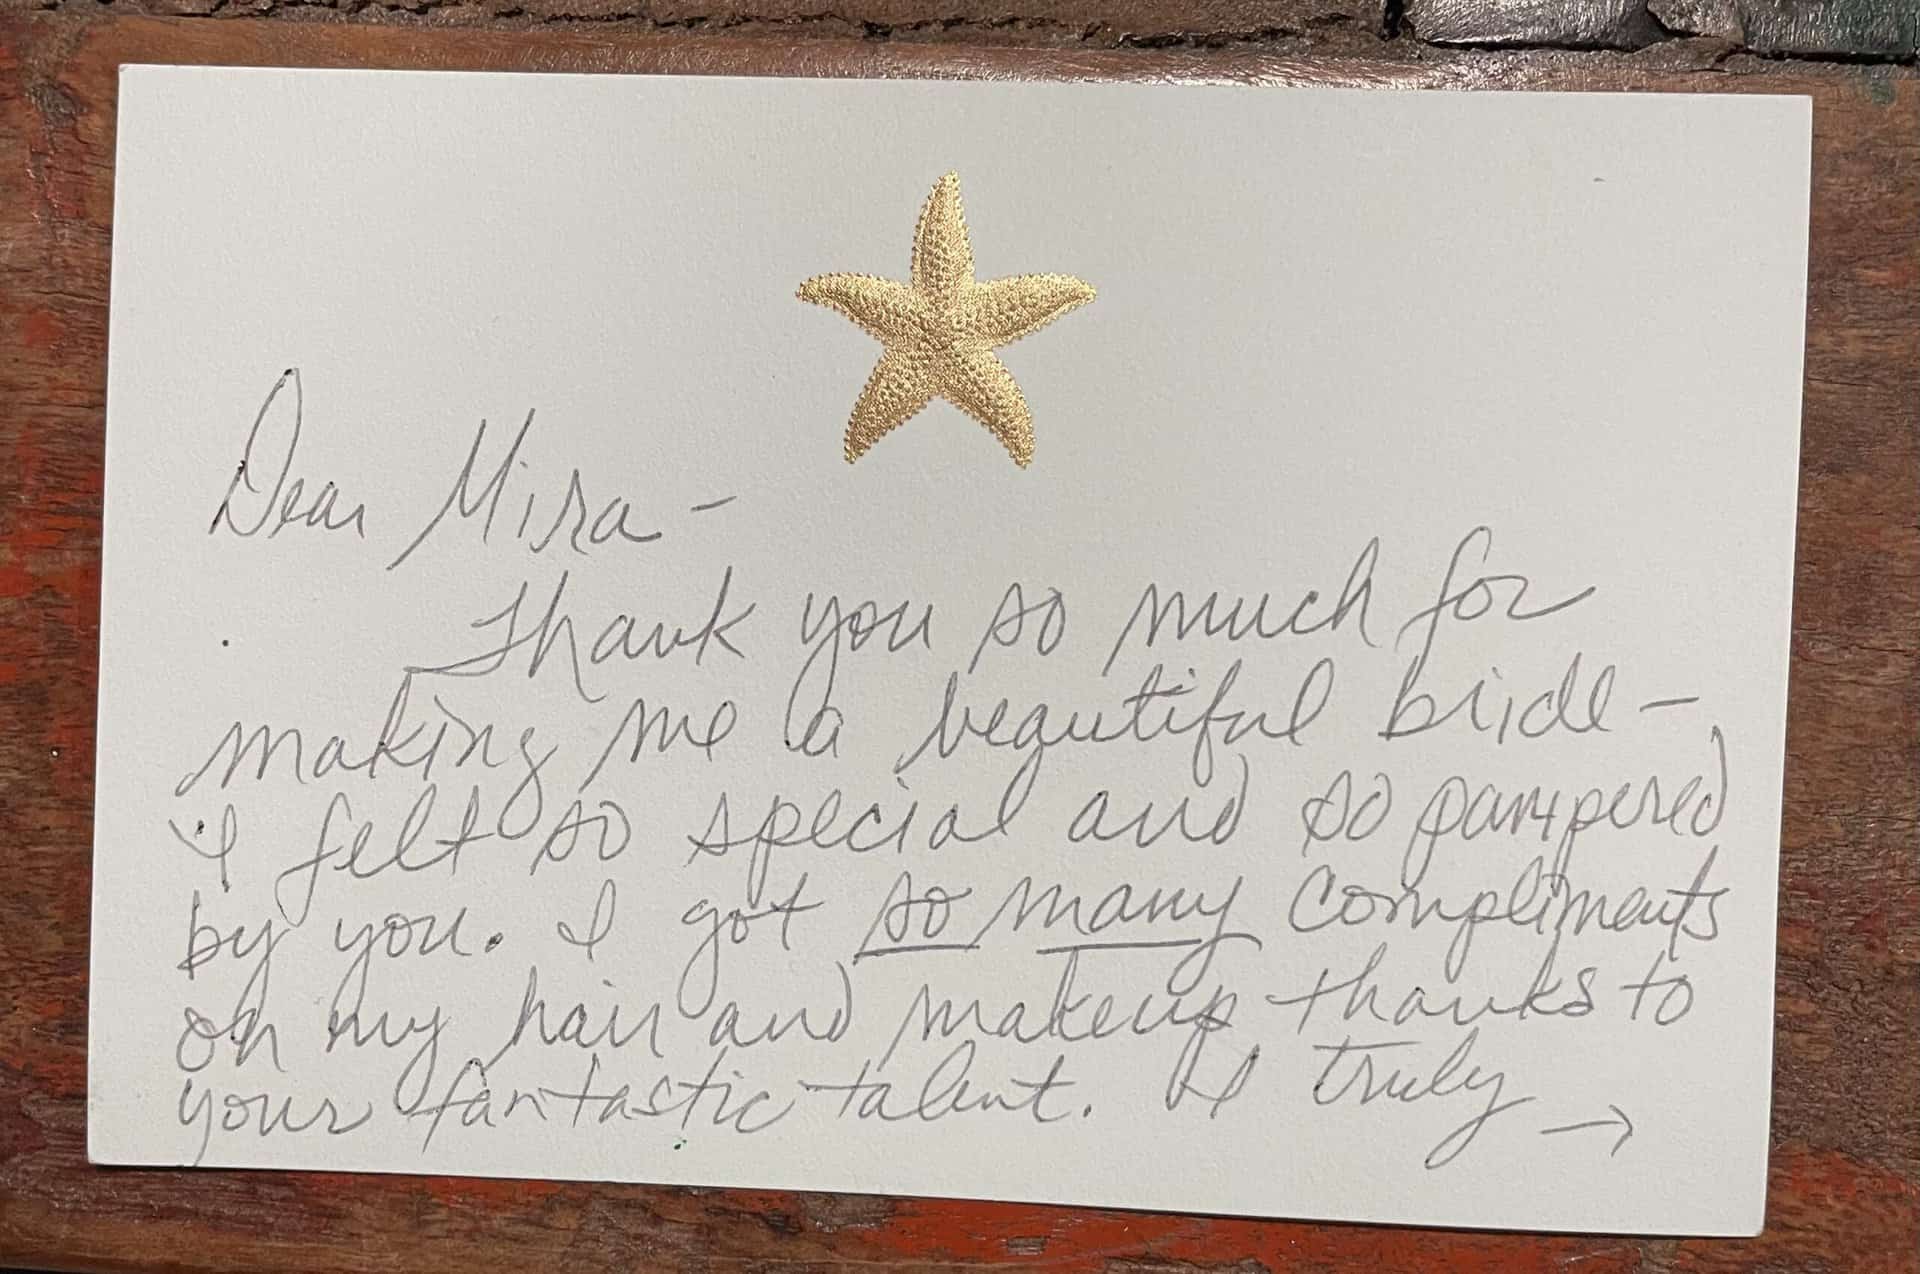 Dear Mira -
Thank you so much for
making me a beautiful bride -
I felt so special and so pampered
by you. I got so many compliments
on my hair and makeup thanks to
your fantastic talent. I truly →